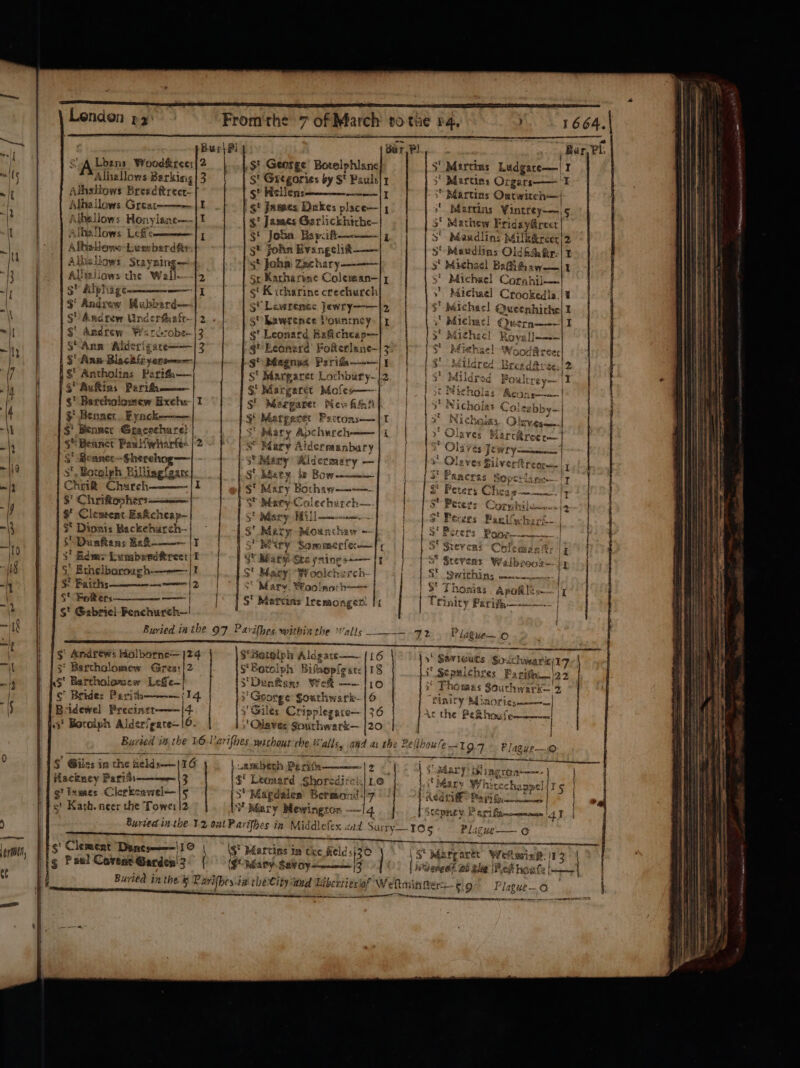 London 12 From the 7 of March to the 14. 1664.
Bur. Pl.
St Albans Woodstreet 2
Alhallows Barking 3
Alhallows Breadstreet
Alhallows Great 1
Alhallows Honylane 1
Alhallows Lesse 1
Alhallows Lumbardstr.
Alhallows Stayning
Alhallows the Wall 2
St Alphage 1
St Andrew Hubbard
St Andrew Undershaft 2
St Andrew Wardrobe 3
St Ann Aldersgate 3
St Ann Blackfryers
St Antholins Parish
St Austins Parish
St Bartholomew Exche 1
St Bennet Fynck
St Bennet Gracechurch
St Bennet Paulswharfe 2
St Bennet Sherehog
St Botolph Billingsgate
Christ Church 1
St Christophers
St Clement Eastcheap
St Dionis Backchurch
St Dunstans East 1
St Edm: Lumbardstreet 1
St Ethelborough 1
St Faiths 2
St Fosters
St Gabriel Fenchurch
Bur. Pl.
St George Botolphlane
St Gregories by St Pauls 1
St Hellens 1
St James Dukes place 1
St James Garlickhithe
St John Baptist 1
St John Evangelist
St John Zachary
St Katharine Coleman 1
St Katharine crechurch
St Lawrence Jewry 2
St Lawrence Pountney 1
St Leonard Eastcheap
St Leonard Fosterlane 3
St Magnus Parish 1
St Margaret Lothbury 2
St Margaret Moses
St Margaret Newfishst
St Margaret Pattons 1
St Mary Abchurch 1
St Mary Aldermanbury
St Mary Aldermary
St Mary le Bow
St Mary Bothaw
St Mary Colechurch
St Mary Hill
St Mary Mounthaw
St Mary Sommerset 1
St Mary Staynings 1
St Mary Woolchurch
St Mary Woolnoth
St Martins Iremonger 1
Bur. Pl.
St Martins Ludgate 1
St Martins Orgars 1
St Martins Outwitch
St Martins Vintrey 5
St Mathew Fridaystreet
St Maudlins Milkstreet 2
St Maudlins Oldfishstr. 1
St Michael Bassishaw 1
St Michael Cornhil
St Michael Crookedla. 1
St Michael Queenhithe 1
St Michael Quern 1
St Michael Royall
St Michael Woodstreet
St Mildred Breadstree. 2
St Mildred Poultrey 1
St Nicholas Acons
St Nicholas Coleabby
St Nicholas Olaves
St Olaves Hartstreet
St Olaves Jewry
St Olaves Silverstreet 1
St Pancras Soperlane 1
St Peters Cheap 1
St Peters Cornhil 2
St Peters Paulswharf
St Peters Poor
St Stevens Colemanstr 1
St Stevens Walbrook 1
St Swithins
St Thomas Apostles 1
Trinity Parish
Buried in the 97 Parishes within the Walls 72 Plague 0
St Andrews Holborne 124
St Bartholomew Great 2
St Bartholomew Lesse
St Brides Parish 14
Bridewel Precinct 4
St Botolph Aldersgate 6
St Botolph Aldgate 16
St Botolph Bishopsgate 18
St Dunstans West 10
St George Southwark 6
St Giles Cripplegate 36
St Olaves Southwark 20
St Saviours Southwark 17
St Sepulchres Parish 22
St Thomas Southwark 2
Trinity Minories
At the Pesthouse
Buried in the 16 Parishes without the Walls, and at the Pesthouse 197 Plague 0
St Giles in the fields 16
Hackney Parish 3
St James Clerkenwel 5
St Kath. neer the Tower 12
Lambeth Parish 2
St Leonard Shoreditch 10
St Magdalen Bermond 7
St Mary Newington 4
St Mary Islington
St Mary Whitechappel 15
Redriff Parish
Stepney Parish 41
Buried in the 12 out Parishes in Middlesex and Surry 105 Plague 0
St Clement Danes 10
St Paul Covent Garden 3
St Martins in the fields 30
St Mary Savoy 3
St Margaret Westminst. 13
whereof at the Pest house
Buried in the 5 Parishes in the City and Liberties of Westminster 59 Plague 0